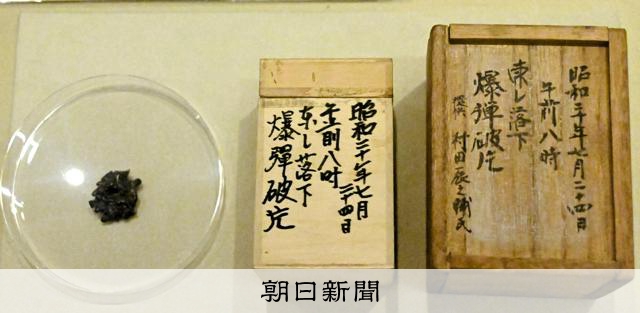 昭和二十年七月
二十四日
午前八時
東レ落下
爆彈破片
昭和二十年七月二十四日
午前八時
東レ落下
爆彈破片
提供 村田辰之輔氏
朝日新聞